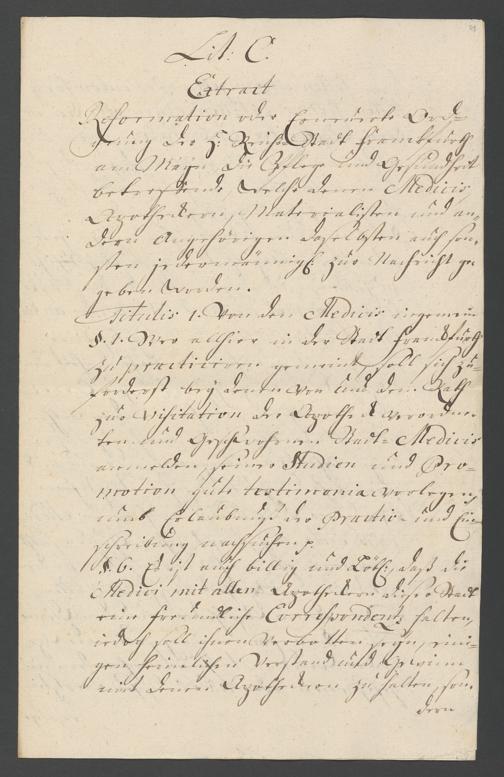 Lit: C.
Extrait
Reformation oder Erneuerte Ord-
nung der H: Reichs Stadt Franckfurth
am Mayn, die Pflege und Gesundheit
betreffende, Welche denen Medicis,
Apotheckern, Materialisten und an-
dern Angehörigen daselbsten auch son-
sten jedermännigl: zur Nachricht ge-
geben worden.
Titulis 1. Von den Medicis ingemein
§. 1. Wer allhier in der Stadt Franckfurth
zu practiciren gemeint, soll sich zu-
forderst bey denen von und dem Rath
zur Visitation der Apotheck verordne-
ten und Geschwohrnen Stadt-Medicis
anmelden, seiner Studien und Pro-
motion gute testimonia vorlegen,
umb Erlaubnuß der Practic und Ein-
schreibung nachsuchen p.
§. 6. Es ist auch billig und Nöth: daß die
Medici mit allen Apotheckern dieser Stadt
eine freundliche Correspondenz halten,
jedoch soll ihnen verbotten seyn, eini-
gen heimlichen Verstand und Gewinn
mit denen Apotheckern zu halten, son-
dern